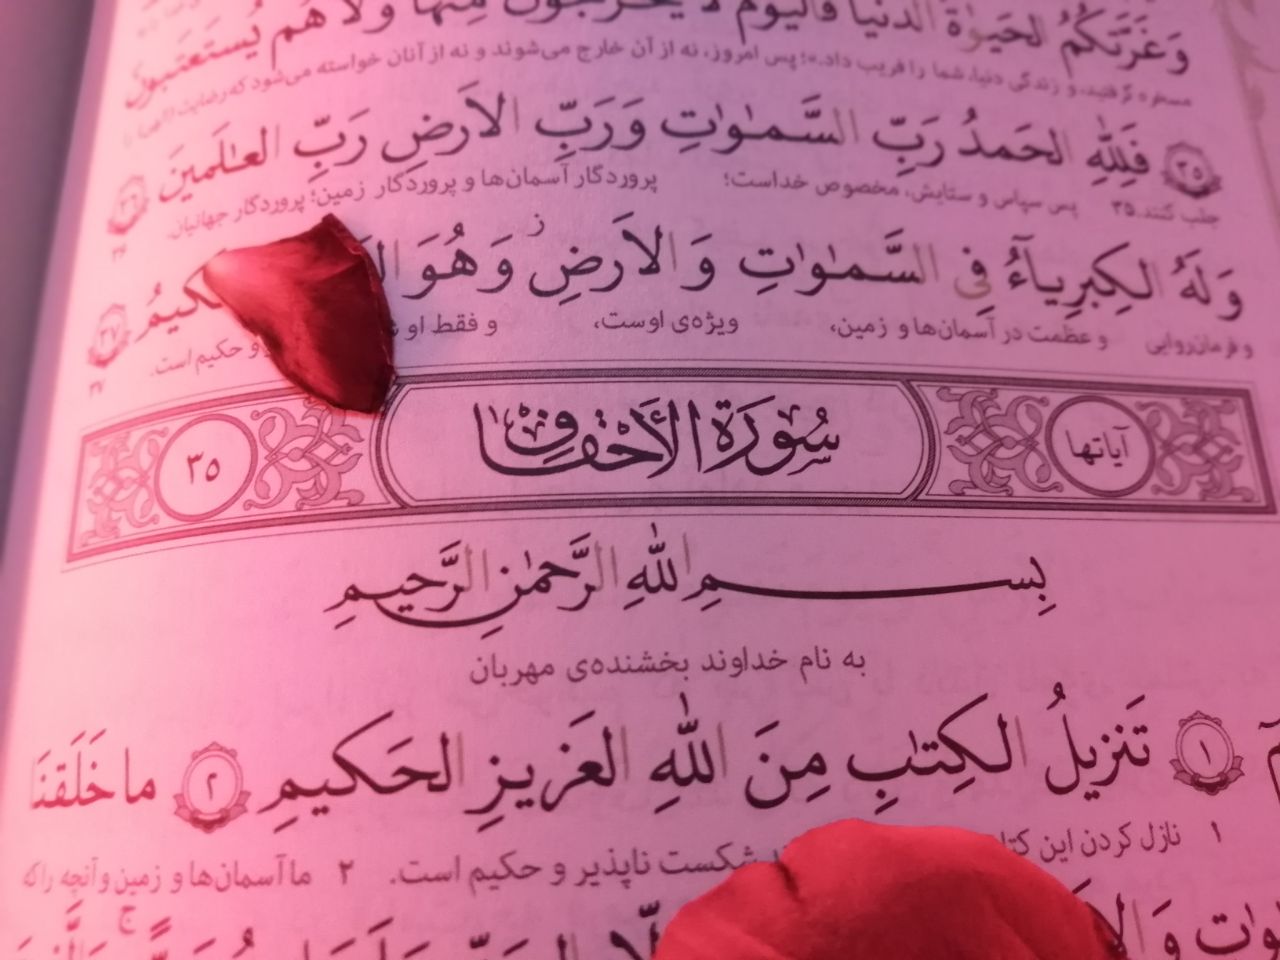 وَغَرَّتكُمُ الحَيَوٰةُ الدُّنيا فَاليَومَ لا يُخرَجونَ مِنها وَلا هُم يُستَعتَبونَ
مسخره گرفتید، و زندگی دنیا، شما را فریب داد.»؛ پس امروز، نه از آن خارج می‌شوند و نه از آنان خواسته می‌شود که رضایت
﴿٣٥﴾ فَلِلَّهِ الحَمدُ رَبِّ السَّمٰوٰتِ وَرَبِّ الأَرضِ رَبِّ العٰلَمينَ ﴿٣٦﴾
جلب کنند. ۳۵ پس سپاس و ستایش، مخصوص خداست؛ پروردگار آسمان‌ها و پروردگار زمین؛ پروردگار جهانیان. ۳۶
وَلَهُ الكِبرِياءُ فِي السَّمٰوٰتِ وَالأَرضِ ز وَهُوَ كيمُ ﴿٣٧﴾
و فرمان‌روایی و عظمت در آسمان‌ها و زمین، ویژه‌ی اوست، و فقط او و حکیم است. ۳۷
آیاتها سُورَةُ الأَحْقافِ ٣٥
بِسمِ اللهِ الرَّحمٰنِ الرَّحيمِ
به نام خداوند بخشنده‌ی مهربان
﴿١﴾ تَنزيلُ الكِتٰبِ مِنَ اللهِ العَزيزِ الحَكيمِ ﴿٢﴾ ما خَلَقنَا
۱ نازل کردن این شکست ناپذیر و حکیم است. ۲ ما آسمان‌ها و زمین و آنچه را که